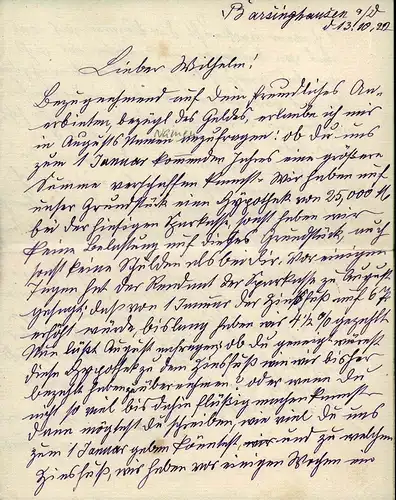 Barsinghausen a/D
d 13.10.22
Lieber Wilhelm!
Bezugnehmend auf dein freundliches An-
erbieten, bezugs des Geldes, erlaube ich mir
in Augusts Namen anzufragen! ob du uns
Namen
zum 1 Januar kommenden Jahres eine größere
Summe verschaffen kannst. Wir haben auf
unser Grundstück eine Hypothek von 25,000 M
bei der hiesigen Sparkasse, sonst haben wir
keine Belastung auf dieses Grundstück, auch
sonst keine Schulden als bei dir. Vor einigen
Tagen hat der Rendant der Sparkasse zu August
gesagt, daß von 1 Januar der Zinsfuß auf 6 %
erhöht würde, bislang haben wir 4½ % gezahlt
Nun läßt August anfragen, ob du geneigt wärest
diese Hypothek zu dem Zinsfuß wie wir bisher
bezahlt haben zu übernehmen? oder wenn du
nicht so viel bis dahin flüßig machen kannst
dann möchtest du schreiben, wie viel du uns
zum 1 Januar geben könntest, und zu welchem
Zinsfuß, wir haben vor einigen Wochen ein